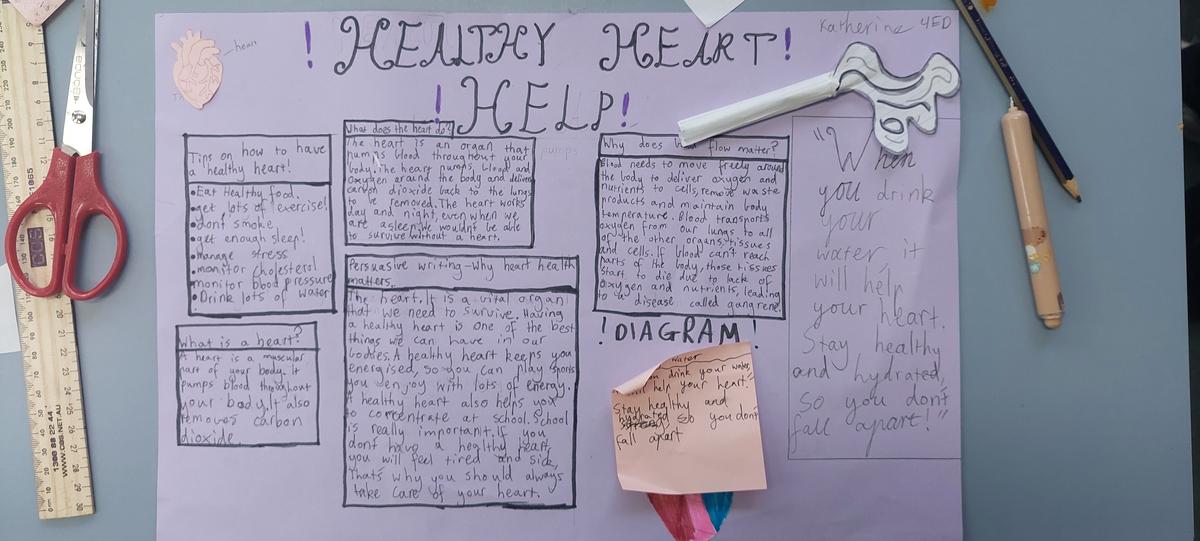 ! HEALTHY HEART!
! HELP!
Katherine 4ED
heart
Tips on how to have
a healthy heart!
• Eat Healthy food.
• get lots of exercise!
• dont smoke
• get enough sleep!
• Manage stress
• monitor cholesterol
monitor blood pressure
• Drink lots of water
What is a heart?
A heart is a muscular
part of your body. It
pumps blood throughout
your body. It also
removes carbon
dioxide.
What does the heart do?
The heart is an organ that
pumps blood throughout your
body. The heart pumps blood and
oxygen around the body and delivers
carbon dioxide back to the lungs
to be removed. The heart works
day and night, even when we
are asleep. We wouldnt be able
to survive without a heart.
pumps
Persuasive writing-Why heart health
matters.
The heart. It is a vital organ
that we need to survive. Having
a healthy heart is one of the best
things we can have in our
bodies. A healthy heart keeps you
energised, so you can play sports
you enjoy with lots of energy.
A healthy heart also helps you
to concentrate at school. School
is really important. If you
dont have a healthy heart,
you will feel tired and sick,
Thats why you should always
take care of your heart.
Why does flow matter?
Blood needs to move freely around
the body to deliver oxygen and
nutrients to cells, remove waste
products and maintain body
temperature. Blood transports
oxygen from our lungs to all
of the other organs, tissues
and cells. If blood can't reach
parts of the body, those tissues
start to die due to lack of
oxygen and nutrients, leading
to a disease called gangrene.
! DIAGRAM !
water
you drink your water,
will help your heart.
Stay healthy and
hydrated so you dont
fall apart
"When
you drink
your
water, it
will help
your heart.
Stay healthy
and hydrated,
so you don't
fall apart!"
1300 88 22 44 WWW.CBS.NET.AU